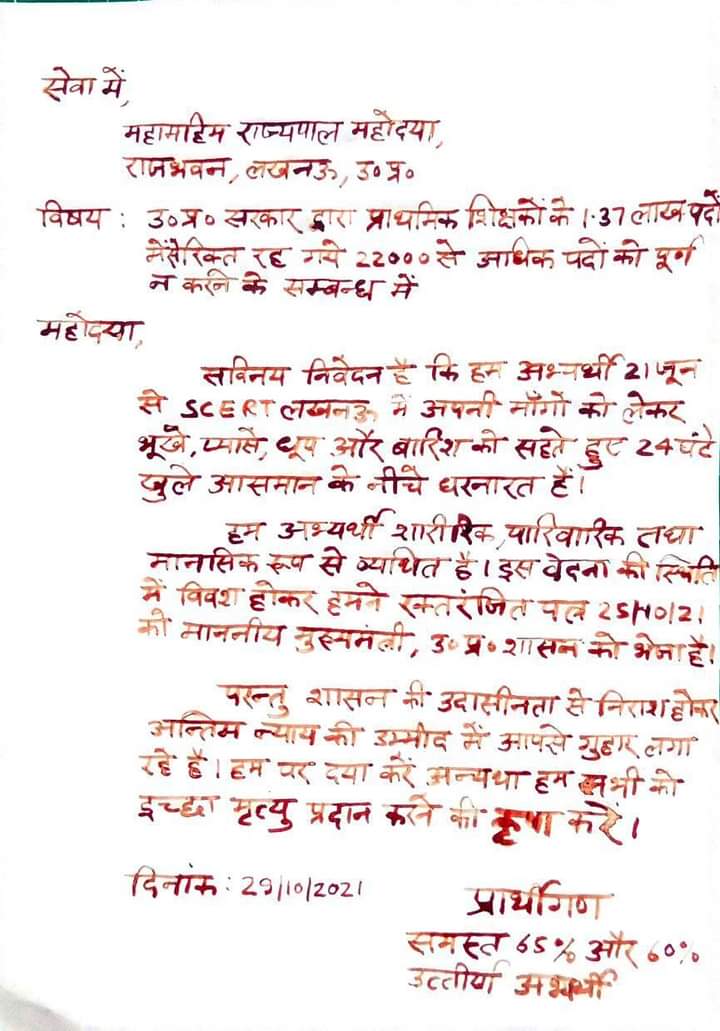 सेवा में,
महामहिम राज्यपाल महोदया,
राजभवन, लखनऊ, उ०प्र०
विषय : उ०प्र० सरकार द्वारा प्राथमिक शिक्षकों के 1.37 लाख पदों
में से रिक्त रह गये 22000 से अधिक पदों को पूर्ण
न करने के सम्बन्ध में
महोदया,
सविनय निवेदन है कि हम अभ्यर्थी 21 जून
से SCERT लखनऊ में अपनी माँगों को लेकर
भूखे, प्यासे, धूप और बारिश को सहते हुए 24 घंटे
खुले आसमान के नीचे धरनारत हैं।
हम अभ्यर्थी शारीरिक, पारिवारिक तथा
मानसिक रूप से व्यथित है। इस वेदना की स्थिति
में विवश होकर हमने रक्तरंजित पत्र 25/10/21
को माननीय मुख्यमंत्री, उ०प्र० शासन को भेजा है।
परन्तु शासन की उदासीनता से निराश होकर
अन्तिम न्याय की उम्मीद में आपसे गुहार लगा
रहे है। हम पर दया करें अन्यथा हम सभी को
इच्छा मृत्यु प्रदान करने की कृपा करें।
दिनांक : 29/10/2021
प्रार्थीगण
समस्त 65% और 60%
उत्तीर्ण अभ्यर्थी